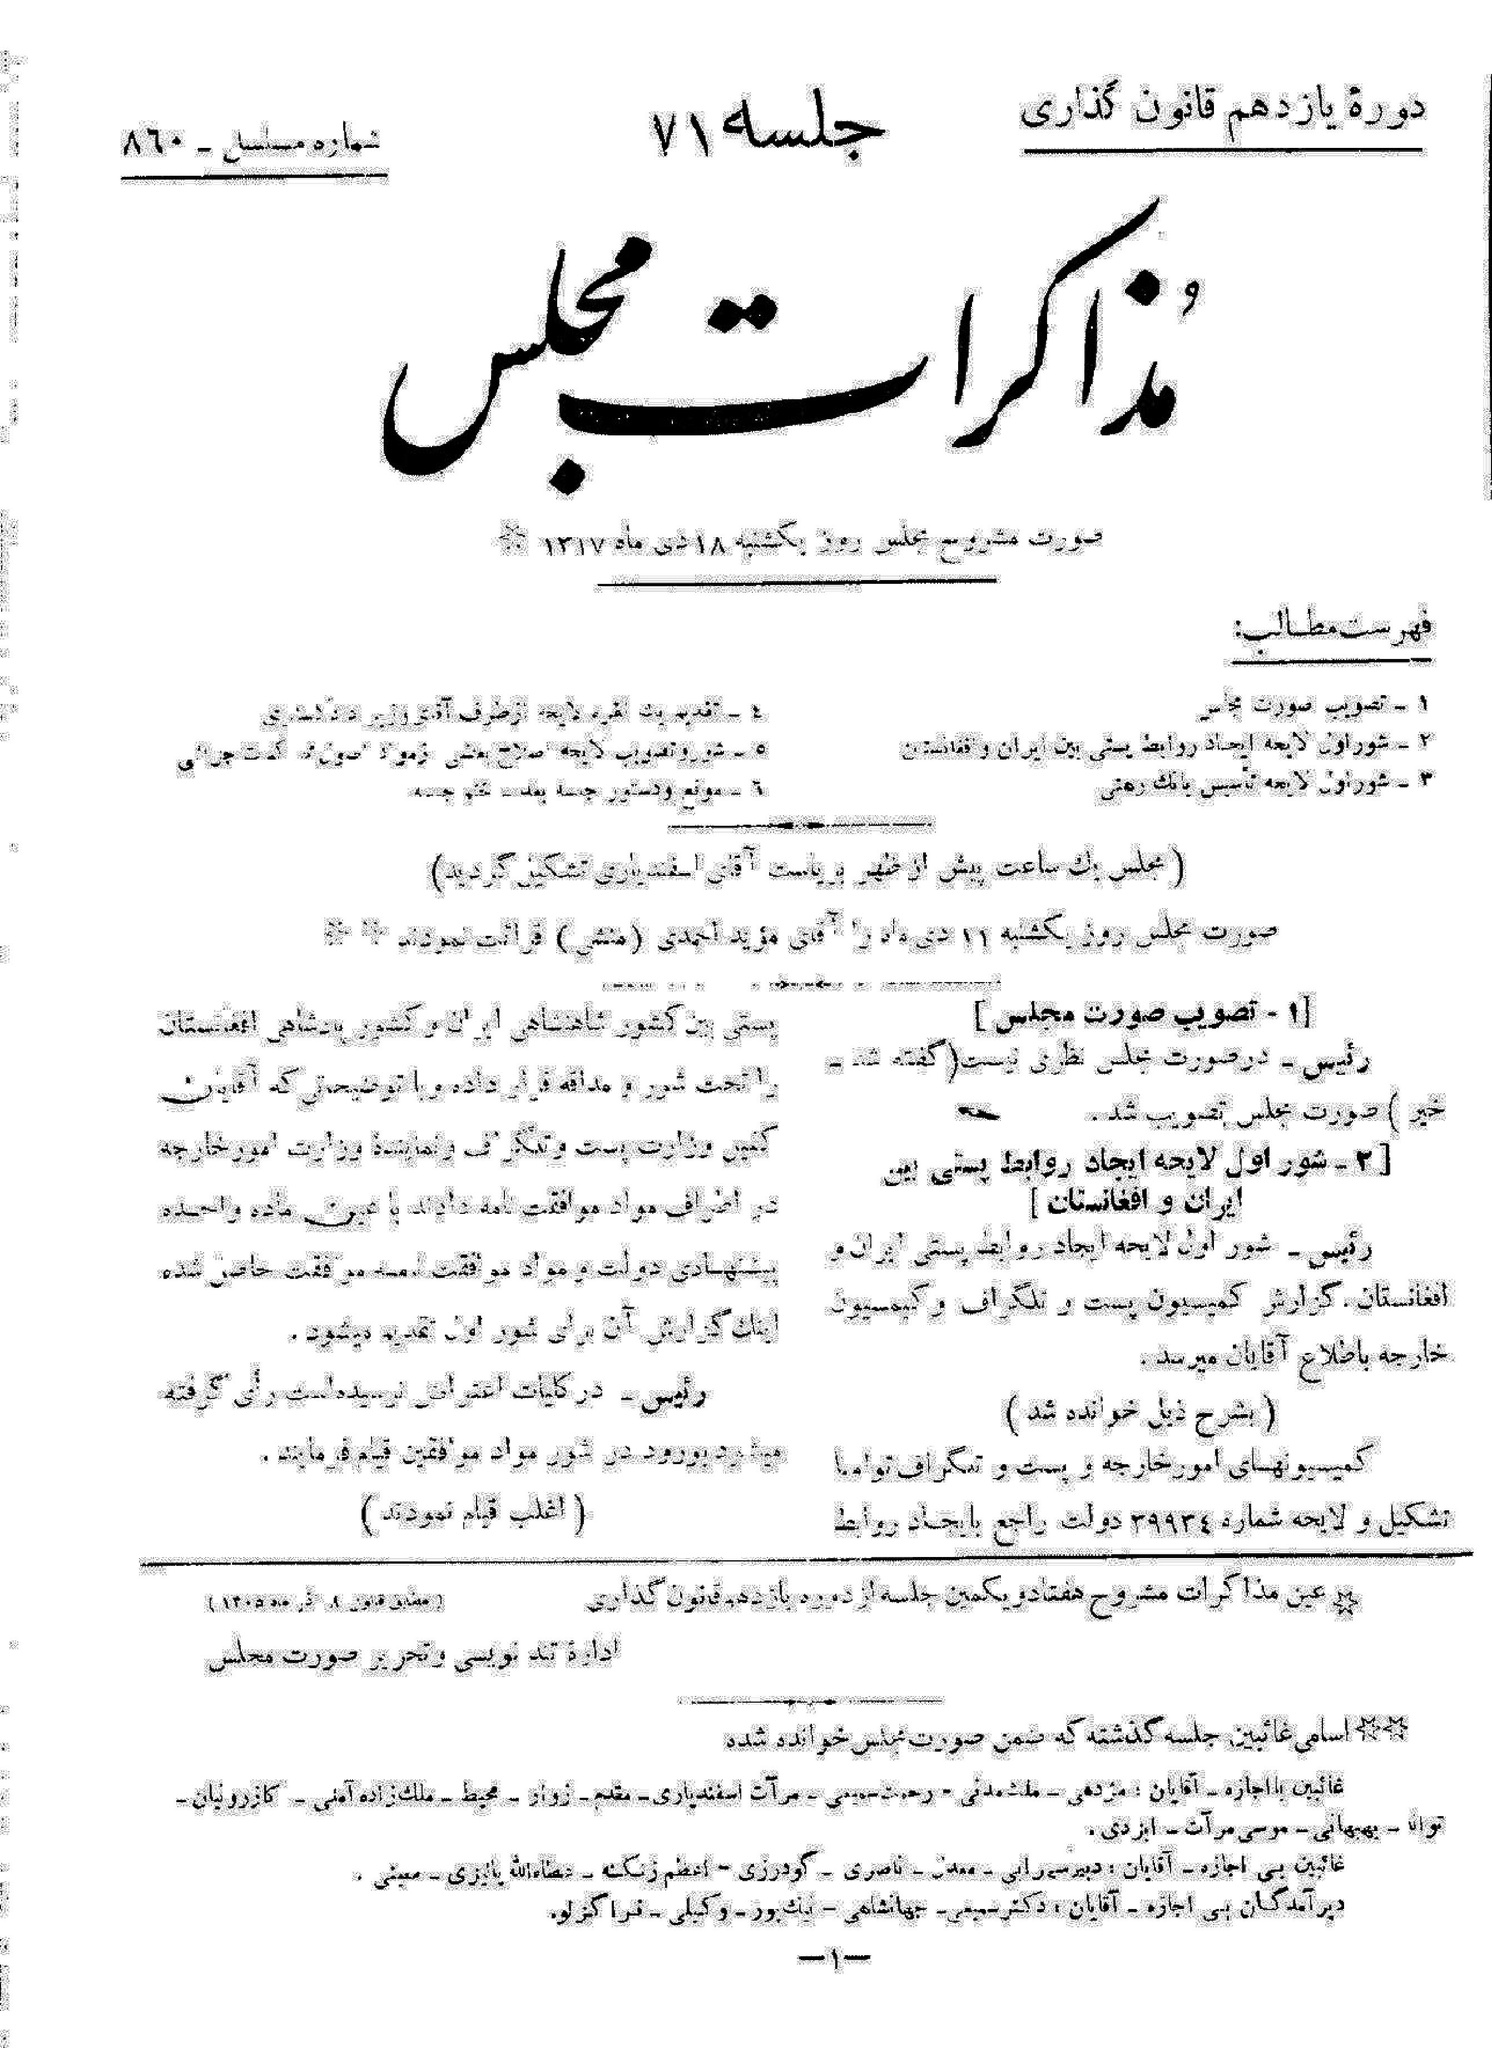 دورهٔ یازدهم قانون گذاری
جلسه ۷۱
شماره مسلسل ـ ۸۶۰
مذاکرات مجلس
صورت مشروح مجلس روز یکشنبه ۱۸ دی ماه ۱۳۱۷ ☆
فهرست مطالب:
۱ ـ تصویب صورت مجلس
۲ ـ شور اول لایحه ایجاد روابط پستی بین ایران و افغانستان
۳ ـ شور اول لایحه تأسیس بانک رهنی
۴ ـ تقدیم یک فقره لایحه از طرف آقای وزیر دادگستری
۵ ـ شور و تصویب لایحه اصلاح بعضی از مواد اصول جزائی
۶ ـ موقع و دستور جلسه بعد ـ ختم جلسه
(مجلس یک ساعت پیش از ظهر بریاست آقای اسفندیاری تشکیل گردید)
صورت مجلس روز یکشنبه ۱۱ دی ماه را آقای مؤید احمدی (منشی) قرائت نمودند ☆☆
[۱ - تصویب صورت مجلس]
رئیس ـ در صورت مجلس نظری نیست (گفته شد ـ
خیر) صورت مجلس تصویب شد.
[۲ ـ شور اول لایحه ایجاد روابط پستی بین
ایران و افغانستان]
رئیس ـ شور اول لایحه ایجاد روابط پستی ایران و
افغانستان. گزارش کمیسیون پست و تلگراف و کمیسیون
خارجه باطلاع آقایان میرسد.
(بشرح ذیل خوانده شد)
کمیسیونهای امور خارجه و پست و تلگراف تواما
تشکیل و لایحه شماره ۳۹۹۳۴ دولت راجع بایجاد روابط
پستی بین کشور شاهنشاهی ایران و کشور پادشاهی افغانستان
را تحت شور و مداقه قرار داده و با توضیحاتی که آقایان
کفیل وزارت پست و تلگراف و نمایندهٔ وزارت امور خارجه
در اطراف مواد موافقت نامه دادند با عین ماده واحده
پیشنهادی دولت و مواد موافقت نامه موافقت حاصل شده
اینک گزارش آن برای شور اول تقدیم میشود.
رئیس ـ در کلیات اعتراضی نرسیده است رأی گرفته
میشود بورود در شور مواد موافقین قیام فرمایند.
(اغلب قیام نمودند)
☆ عین مذاکرات مشروح هفتاد و یکمین جلسه از دوره یازدهم قانون گذاری
(مطابق قانون ۸ آذر ماه ۱۳۰۵)
ادارهٔ تند نویسی و تحریر صورت مجلس
☆☆ اسامی غائبین جلسه گذشته که ضمن صورت مجلس خوانده شده
غائبین با اجازه ـ آقایان: مژدهی ـ ملک مدنی - رحمت سمیعی ـ مرآت اسفندیاری ـ مقدم ـ زوار ـ محیط ـ ملک زاده آملی ـ کازرونیان ـ
توانا ـ بهبهانی ـ موسی مرآت ـ ایزدی.
غائبین بی اجازه ـ آقایان: دبیر سهرابی ـ معدل ـ ناصری ـ گودرزی - اعظم زنگنه ـ عطاءالله پالیزی ـ معینی.
دیر آمدگان بی اجازه ـ آقایان: دکتر سمیعی ـ جهانشاهی - نیک پور ـ وکیلی ـ قراگزلو.
—۱—